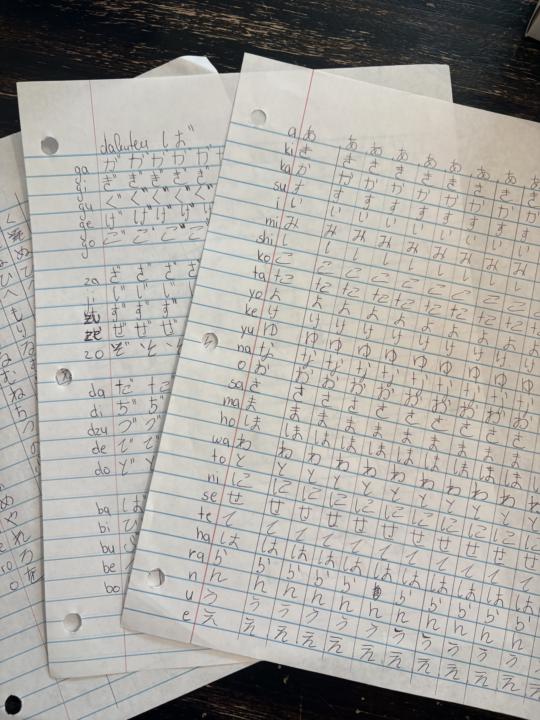 dakuten し ば"
ga が が が が が
gi ぎ ぎ ぎ ぎ ぎ
gu ぐ ぐ ぐ ぐ
ge げ げ げ げ
go ご ご ご ご
za ざ ざ ざ ざ
ji じ じ じ じ
zu ず ず ず
ze ぜ ぜ ぜ
zo ぞ ぞ ぞ
da だ だ
di ぢ ぢ
dzu づ づ
de で で
do ど ど
ba ば
bi び
bu
be
bo
a あ あ あ あ あ あ あ あ
ki き き き き き き き き
ka か か か か か か か か
su す す す す す す す す
i い い い い い い い い
mi み み み み み み み み
shi し し し し し し し し
ko こ こ こ こ こ こ こ こ
ta た た た た た た た た
yo よ よ よ よ よ よ よ よ
ke け け け け け け け け け
yu ゆ ゆ ゆ ゆ ゆ ゆ ゆ ゆ ゆ
na な な な な な な な な な
o お お お お お お お お お
sa さ さ さ さ さ さ さ さ さ
ma ま ま ま ま ま ま ま ま ま
ho ほ ほ ほ ほ ほ ほ ほ ほ ほ
wa わ わ わ わ わ わ わ わ わ
to と と と と と と と と と
ni に に に に に に に に に に
se せ せ せ せ せ せ せ せ せ せ
te て て て て て て て て て て
ha は は は は は は は は は は
ra ら ら ら ら ら ら ら ら ら
n ん ん ん ん ん ん ん ん ん ん
u う う う う う う う う う う
e え え え え え え え え え え え